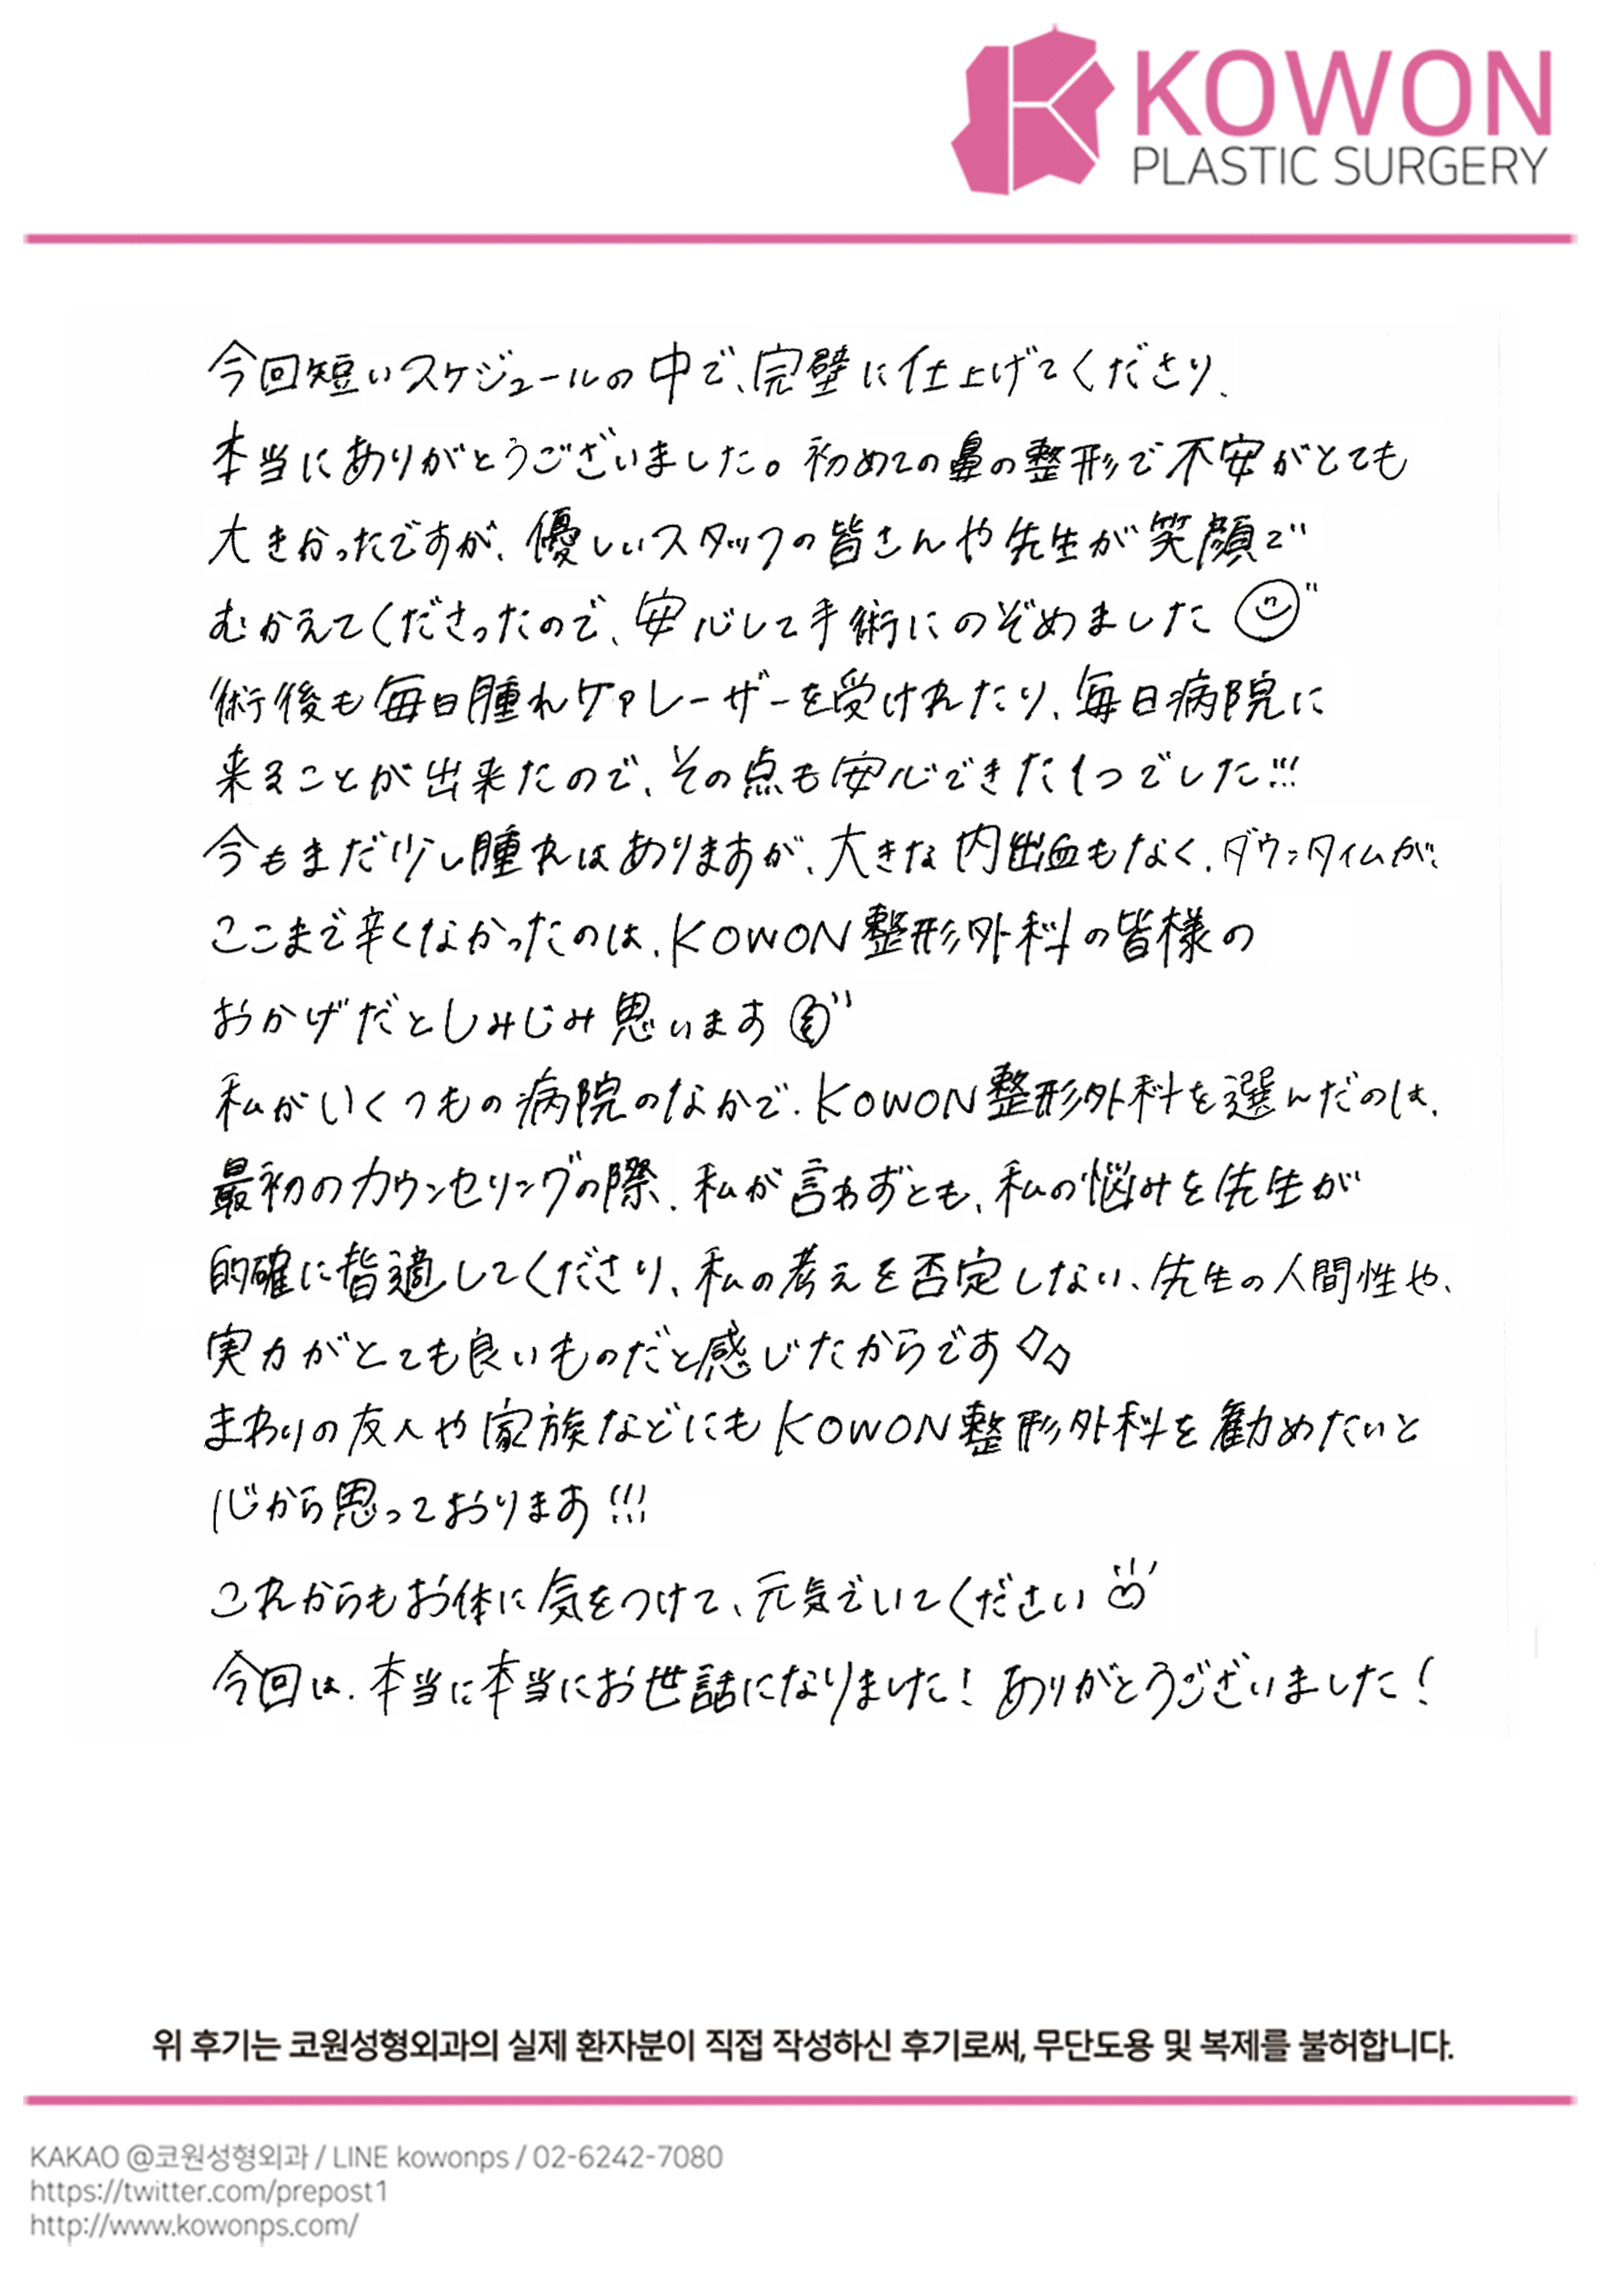 KOWON
PLASTIC SURGERY
今回短いスケジュールの中で、完璧に仕上げてくださり、
本当にありがとうございました。初めての鼻の整形で不安がとても
大きかったですが、優しいスタッフの皆さんや先生が笑顔で
むかえてくださったので、安心して手術にのぞめました
術後も毎日腫れケアレーザーを受けれたり、毎日病院に
来ることが出来たので、その点も安心できた1つでした!!!
今もまだ少し腫れはありますが、大きな内出血もなく、ダウンタイムが、
ここまで辛くなかったのは、KOWON整形外科の皆様の
おかげだとしみじみ思います
私がいくつもの病院のなかで、KOWON整形外科を選んだのは、
最初のカウンセリングの際、私が言わずとも、私の悩みを先生が
的確に皆適してくださり、私の考えを否定しない、先生の人間性や、
実力がとても良いものだと感じたからです
まわりの友人や家族などにもKOWON整形外科を勧めたいと
心から思っております!!!
これからもお体に気をつけて、元気でいてください
今回は、本当に本当にお世話になりました！ありがとうございました！
위 후기는 코원성형외과의 실제 환자분이 직접 작성하신 후기로써, 무단도용 및 복제를 불허합니다.
KAKAO @코원성형외과 / LINE kowonps / 02-6242-7080
https://twitter.com/prepost1
http://www.kowonps.com/